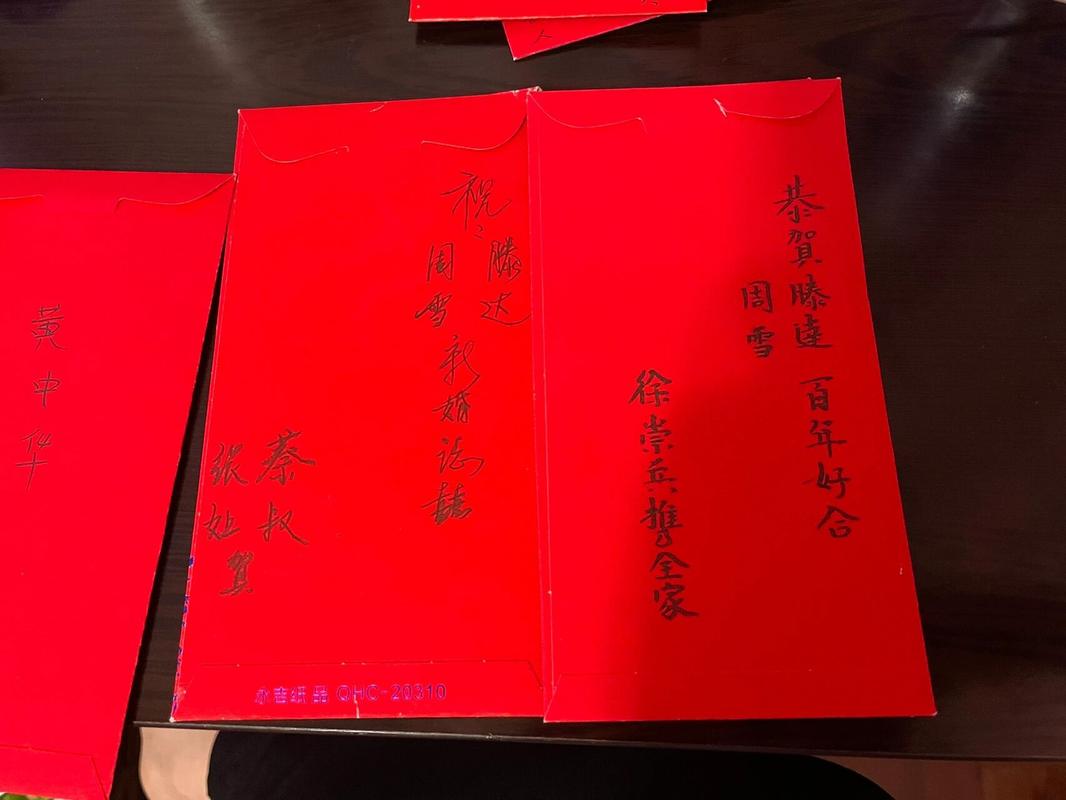 恭賀滕達 百年好合
周雪
徐崇兵携全家
祝: 滕达
周雪 新婚誌囍
蔡叔
张姐 賀
永吉纸品 QHC-20310
黄中华
人